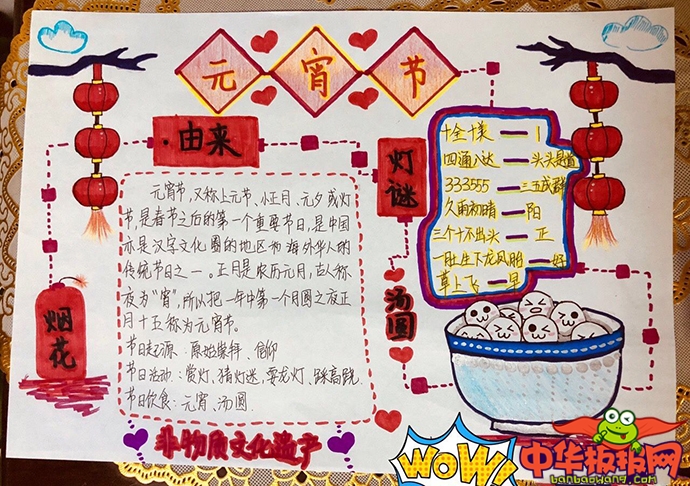 元宵节
由来
元宵节,又称上元节、小正月、元夕或灯
节,是春节之后的第一个重要节日,是中国
亦是汉字文化圈的地区和海外华人的
传统节日之一。正月是农历元月,古人称
夜为“宵”,所以把一年中第一个月圆之夜正
月十五称为元宵节。
节日起源:原始崇拜、信仰
节日活动:赏灯、猜灯迷、耍龙灯、踩高跷
节日饮食:元宵、汤圆
非物质文化遗产
烟花
灯谜
十全十美 — 1
四通八达 — 头头是道
333555 — 三五成群
久雨初晴 — 阳
三个十不出头 — 正
一胜生下龙凤胎 — 好
草上飞 — 早
汤圆
WOW!
中华板报网
banbaowang.com